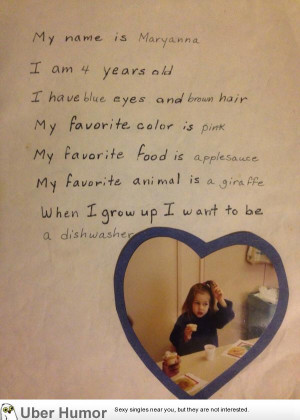 My name is Maryanna
I am 4 years old
I have blue eyes and brown hair
My favorite color is pink
My favorite food is applesauce
My favorite animal is a giraffe
When I grow up I want to be
a dishwasher
Uber Humor
Sexy singles near you, but they are not interested.